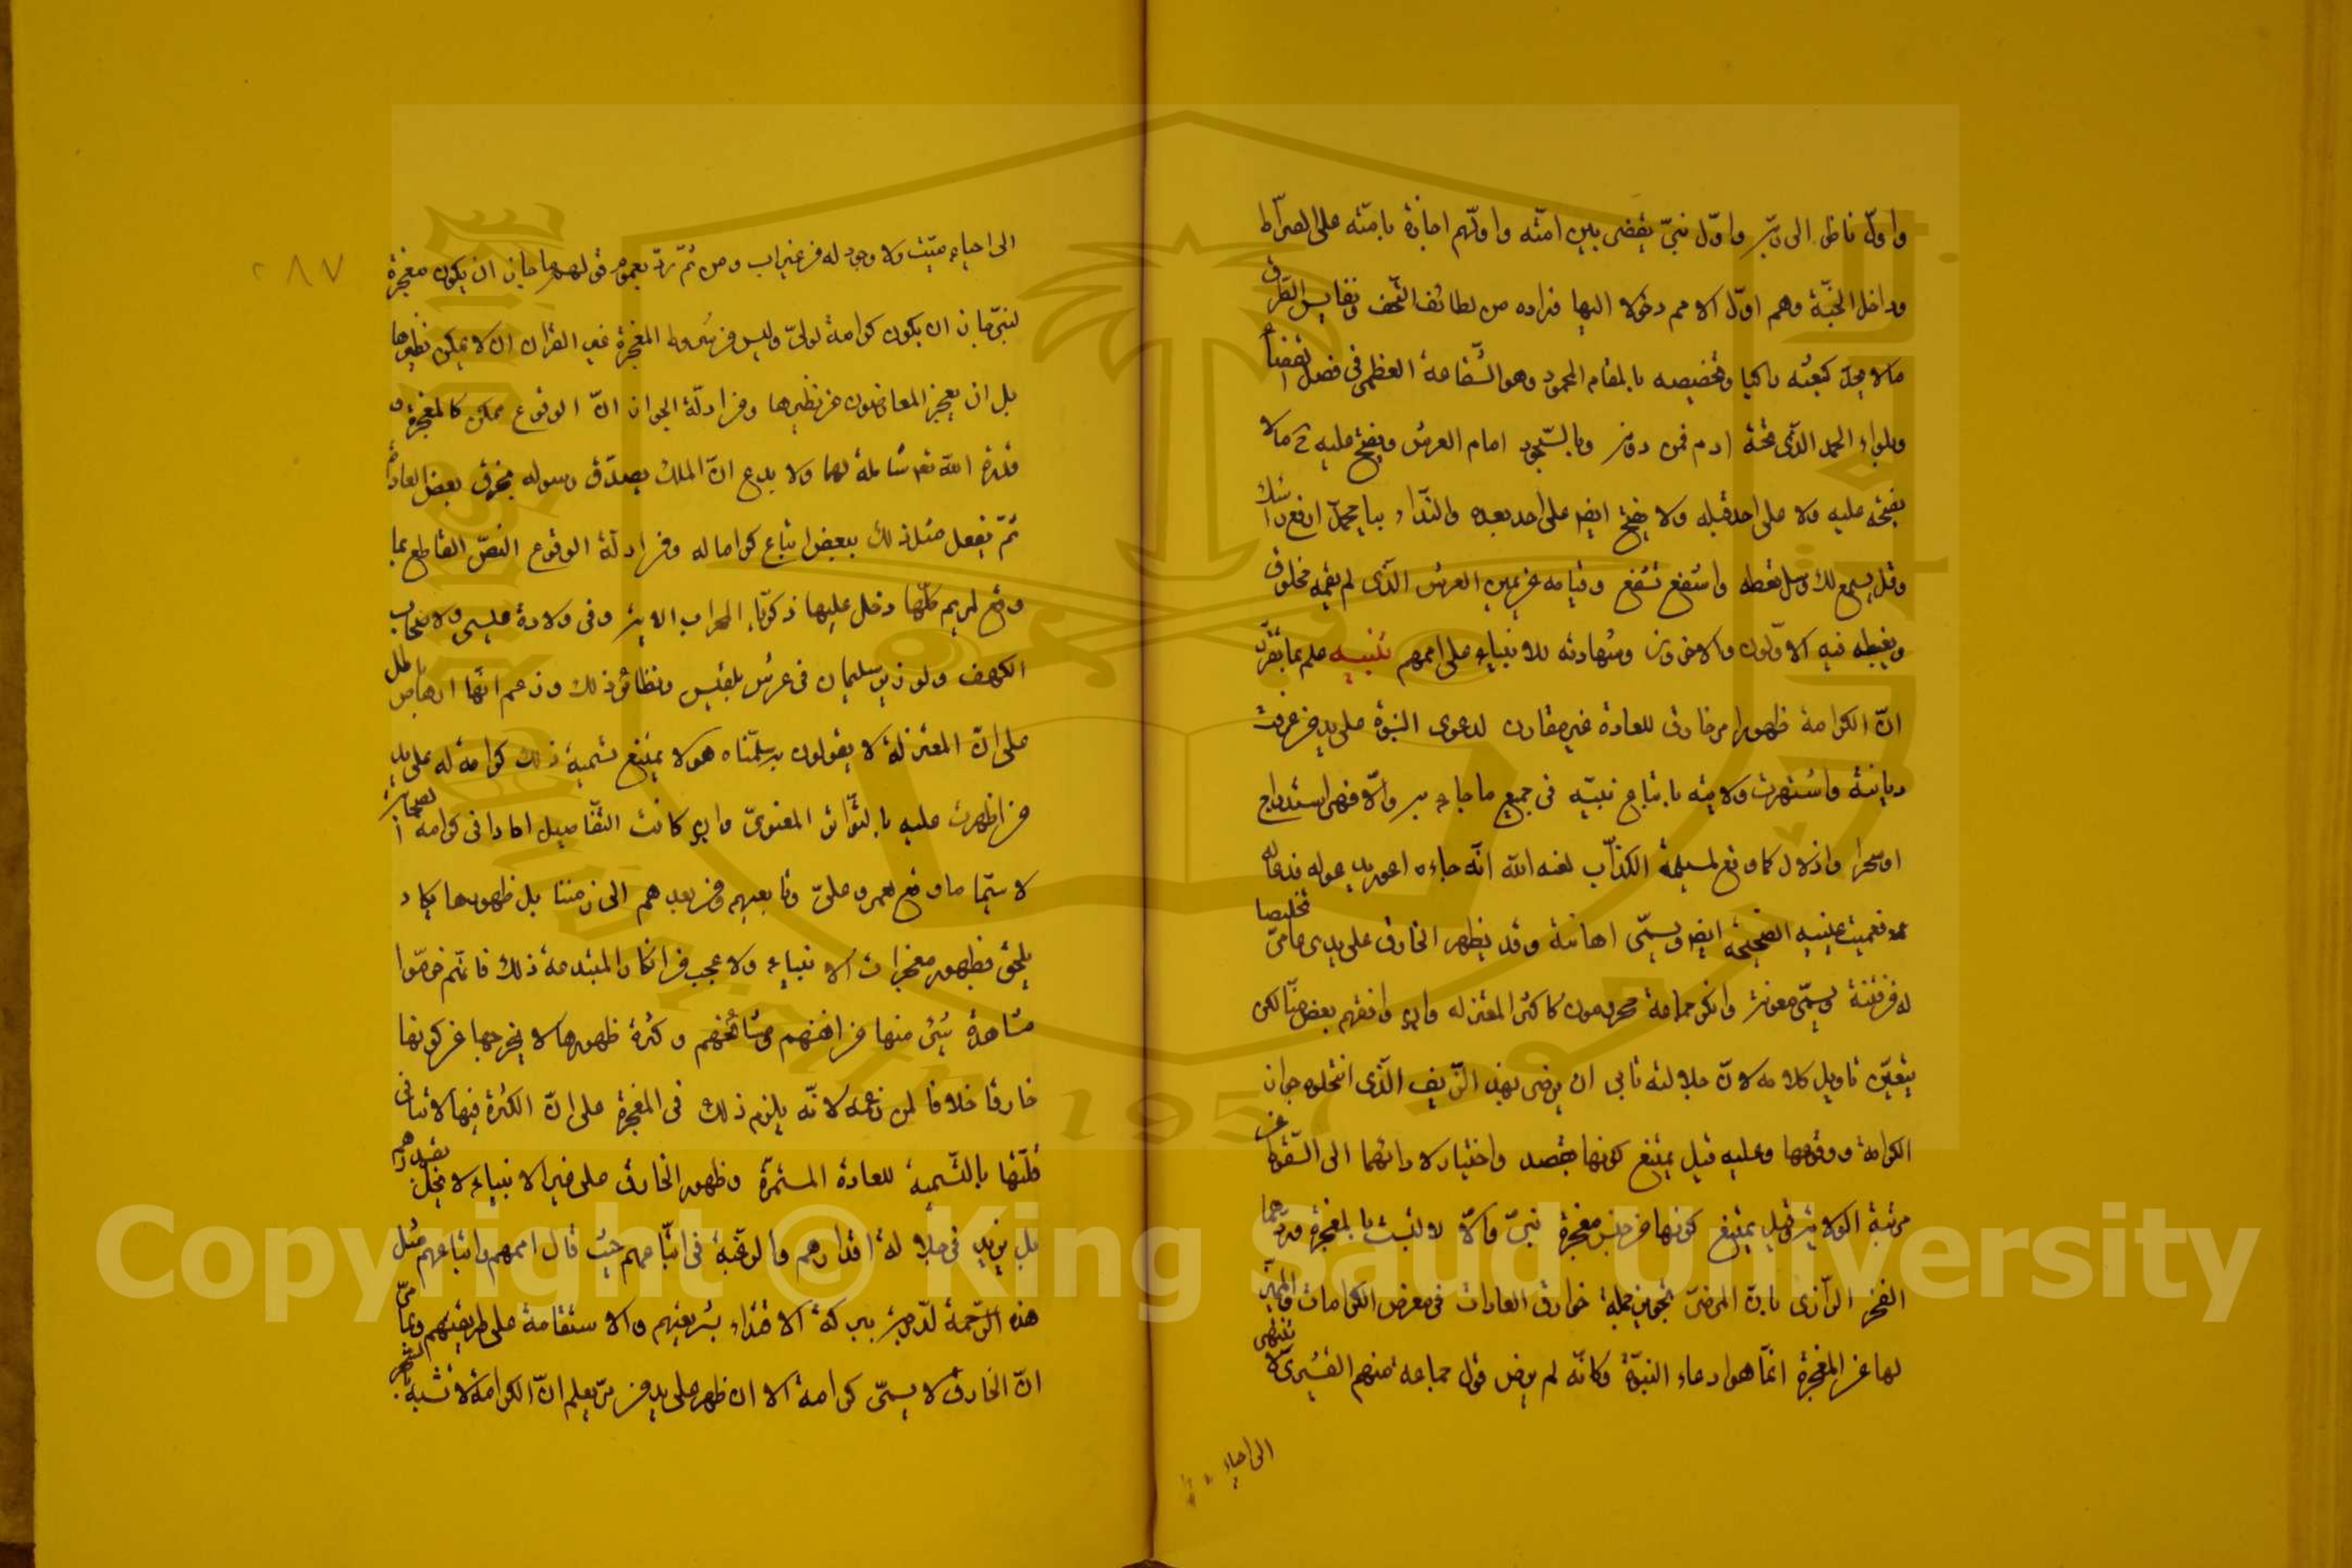 واوّل ناظر الى ربّه واوّل نبيّ يقضى بين امّته واوّلهم اجازة بامّته على الصّراط
وداخل الجنّة وهم اوّل الامم دخولا اليها وزاده من لطائف التّحف ونفايس الطّرف
مالا يحدّ كبعثه راكبا وتخصيصه بالمقام المحمود وهو الشّفاعة العظمى فى فصل القضاء
وبلواء الحمد الّذى تحته ادم فمن دونه وبالسّجود امام العرش ويفتح عليه ح مالا
يفتحه عليه ولا على احد قبله ولا يفتح ايضه على احد بعده والنّداء بيا محمّد ارفع راسك
وقل يسمع لك وسل تعطه واشفع تشفع وقيامه عن يمين العرش الّذى لم يقمه مخلوق
ويغبطه فيه الاوّلون والاخرون وشهادته للانبياء على اممهم تنبيه علم بما تقرّر
انّ الكرامة ظهور امر خارق للعادة غير مقارن لدعوى النبوّة على يد من عرفت
ديانته واشتهرت ولايته باتباع نبيّه فى جميع ما جاء به والّا فهى استدراج
او سحر او اذلال كما وقع لمسيلمة الكذّاب لعنه الله انّه جاءه اعور يدعو له فدعا له
فعميت عينيه الصّحيحة ايضه ويسمّى اهانة وقد يظهر الخارق على يدى عامىّ تخليصا
له من فتنة ويسمّى معونة وانكر جماعة محرومون كاكثر المعتزله وان وافقهم بعض منّا لكن
يتعيّن تاويل كلامه لانّ جلالته تابى ان يرضى بهذ الزّيف الّذى انتحلوه جواز
الكرامة ووقوعها وعليه قيل يمتنع كونها بقصد واختيار لادائهما الى السّقوط عن
مرتبة الولاية وقيل يمتنع كونها من جنس معجزة نبىّ والّا لالتبست بالمعجزة وردّهما
الفخر الرّازى بانّ المرضىّ تجويز جملة خوارق العادات فى معرض الكرامات والمميّز
لها عن المعجزة انّما هو ادعاء النبوّة وكانّه لم يرض قول جماعة منهم القشيرىّ لا تنتهى
الى احياء
٢٨٧
الى احياء ميّت ولا وجود له من غير اب ومن ثمّ ردّ بعموم قولهم ما جاز ان يكون معجزة
لنبىّ جاز ان يكون كرامة لولىّ وليس من شروط المعجزة غير القران ان لا يمكن نظيرها
بل ان يعجز المعارضون عن نظيرها ومن ادلّة الجواز انّ الوقوع ممكن كالمعجزة و
قدرة الله تعه شاملة لهما ولا بدع انّ الملك يصدّق رسوله بخرق بعض العادات
ثمّ يفعل مثل ذلك ببعض اتباع كراما له ومن ادلّة الوقوع النصّ القاطع بما
وقع لمريم كلّما دخل عليها زكريّا المحراب الاية وفى ولادة عيسى ولاصحاب
الكهف ولوزير سليمان فى عرش بلقيس ونظائر ذلك وزعم انّها ارهاص باطل
على انّ المعتزلة لا يقولون به سلّمناه هو لا يمتنع تسمية ذلك كرامة له على يد
من اظهرت عليه بالتّواتر المعنوىّ وان كانت التّفاصيل احادا فى كرامة الصّحابة
لاسيّما ما وقع لعمر وعلىّ وتابعيهم ومن بعدهم الى زمننا بل ظهورها يكاد
يلحق بظهور معجزات الانبياء ولا عجب من انكار المبتدعة ذلك فانّهم حرموا
مشاهدة شئ منها من انفسهم ومشائخهم وكثرة ظهورها لا يخرجها عن كونها
خارقا خلافا لمن زعمه لانّه يلزم ذلك فى المعجزة على انّ الكثرة فيها لا تنافى
قلّتها بالنّسبة للعادة المستمرّة وظهور الخارق على غير الانبياء لا يخلّ بقدرهم
بل يزيد فى جلالة اقدارهم والرغبة فى اتّباعهم حيث قال اممهم واتباعهم مثل
هذه الرّحمة لدّرجة ببركة الاقتداء بشريعتهم والاستقامة على طريقتهم وممّا مرّ
انّ الخارق لا يسمّى كرامة الا ان ظهر على يد من مرّ يعلم انّ الكرامة لا تشبه السّحر
Copyright © King Saud University
1957